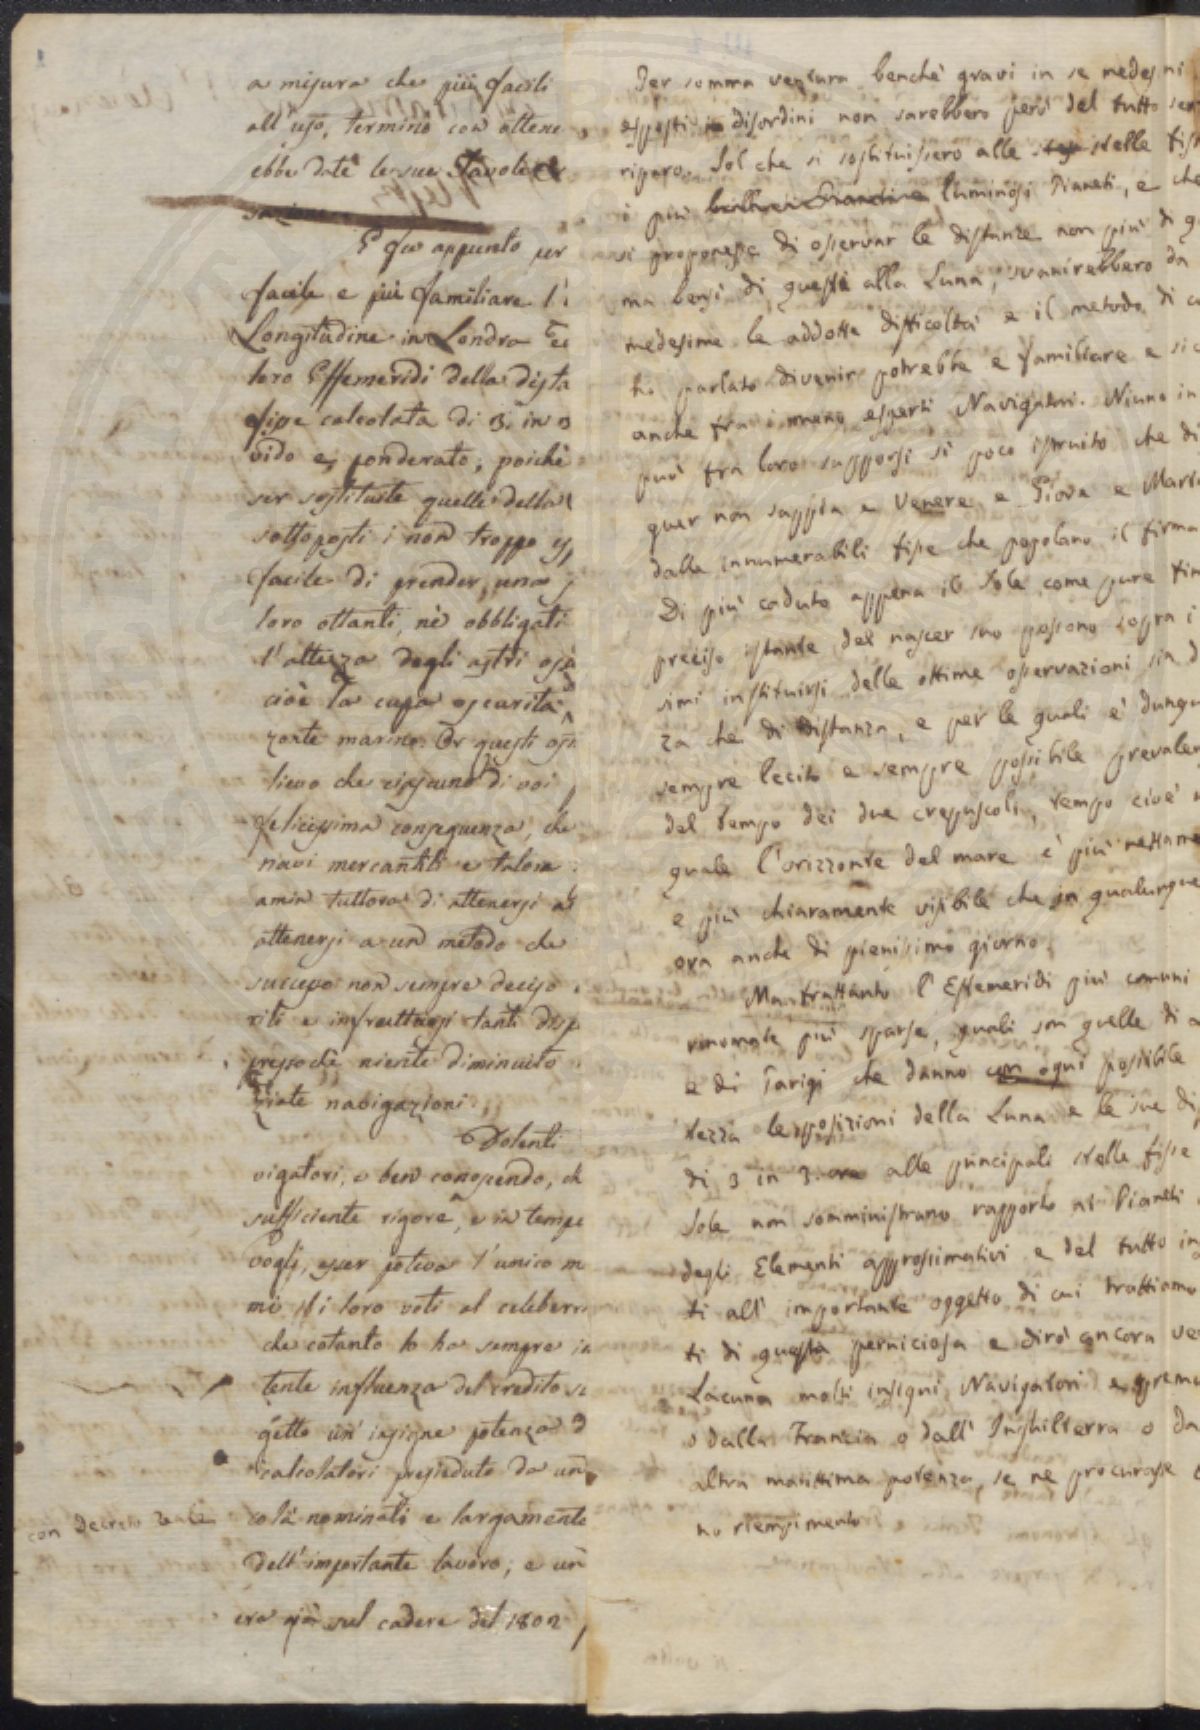 a misura che più facili
all'uso, terminò con ottene
ebbe date le sue Tavole
E fu appunto per
facile e più familiare l'
Longitudine in Londra
loro Effemeridi della dista
fisse calcolata di 3. in 3
vido e ponderato; poichè
ser sostituite quelle della
sottoposti i non troppo esp
facile di prender una
loro ottanti, nè obbligati
l'altezza degli astri oss
cioè la cupa oscurità
zonte marino. Or questi
lievo che ciascuno di voi
felicissima conseguenza, che
navi mercantili e talora
amin tuttora di attenersi
attenersi a un metodo che
successo non sempre deciso
riti e infruttuosi tanti disp
pressochè niente diminuito
riate navigazioni.
Dolenti
vigatori, e ben conoscendo, ch
sufficiente rigore, e in tempe
vogli, esser poteva l'unico m
mi Il i loro voti al celeberri
che cotanto lo ha sempre in
tente influenza del credito su
getto un' insigne potenza
calcolatori presieduto da un
con decreto reale
colà nominati e largamente
dell'importante lavoro; e un
era già sul cadere del 1802
Per somma ventura benchè gravi in se medesmi
esposti disordini non sarebbero però del tutto sen
riparo. Sol che si sostituissero alle stelle fiss
i più luminosi Pianeti, e che
si proponesse di osservar le distanze non più di q
ma bensì di questi alla Luna, svanirebbero da
medesime le addotte difficoltà e il metodo di cu
ho parlato divenir potrebbe e familiare e sic
anche fra i meno esperti Navigatori. Niuno in
può fra loro supporsi sì poco istruito che di
guer non sappia e Venere e Giove e Marte
dalle innumerabili fisse che popolano il firma
Di più caduto appena il Sole come pure fin
preciso istante del nascer suo possono sopra i
simi instituirsi delle ottime osservazioni sia d
za che di distanza, e per le quali è dunqu
sempre lecito e sempre possibile prevaler
del tempo dei due crepuscoli, tempo cioè
quale l'orizzonte del mare è più nettame
e più chiaramente visibile che in qualunque
ora anche di pienissimo giorno.
Ma frattanto l'Effemeridi più comuni
più sparse, quali son quelle di
e di Parigi che danno con ogni possibile
tezza le posizioni della Luna e le sue di
di 3 in 3. ore alle principali stelle fisse
Sole non somministrano rapporto ai Pianeti
degli Elementi approssimativi e del tutto in
ti all' importante oggetto di cui trattiamo
ti di questa perniciosa e dirò ancora ve
Lacuna molti insigni Navigatori e premu
o dalla Francia o dall' Inghilterra o da
altra marittima potenza, se ne procurasse
no riempimento